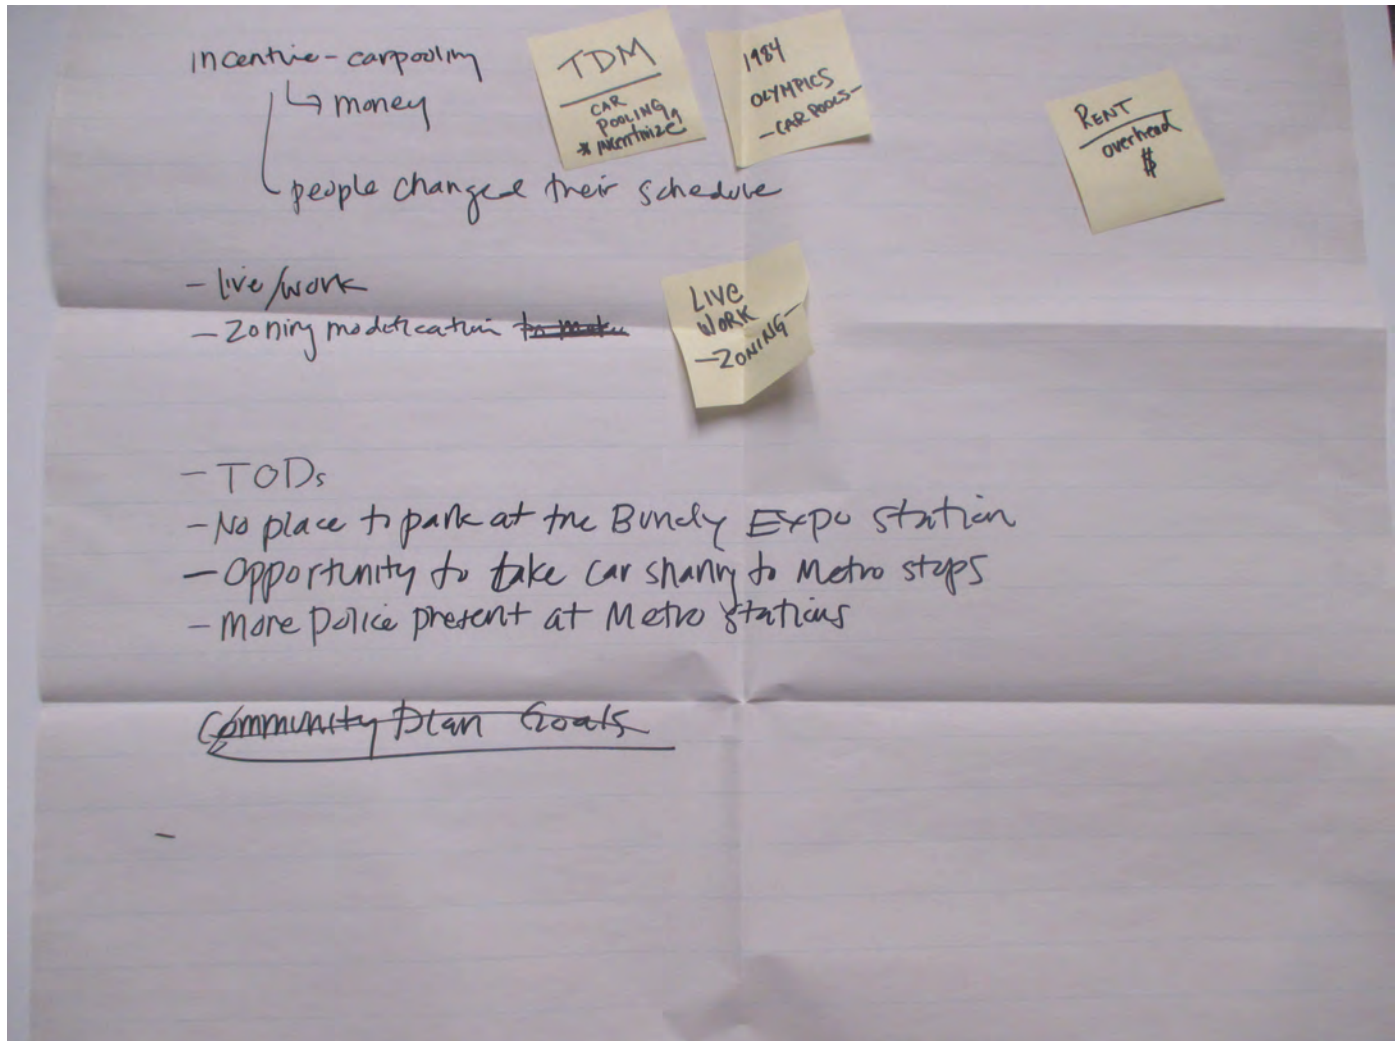 incentive - carpooling
↳ money
people changed their schedule
TDM
CAR
POOLING
* incentivize!
1984
OLYMPICS
- CAR POOLS -
RENT
overhead
$
- live/work
- Zoning modification
LIVE
WORK
- ZONING -
- TODs
- No place to park at the Bundy Expo station
- Opportunity to take car sharing to Metro stops
- More police present at Metro stations
Community Plan Goals
-